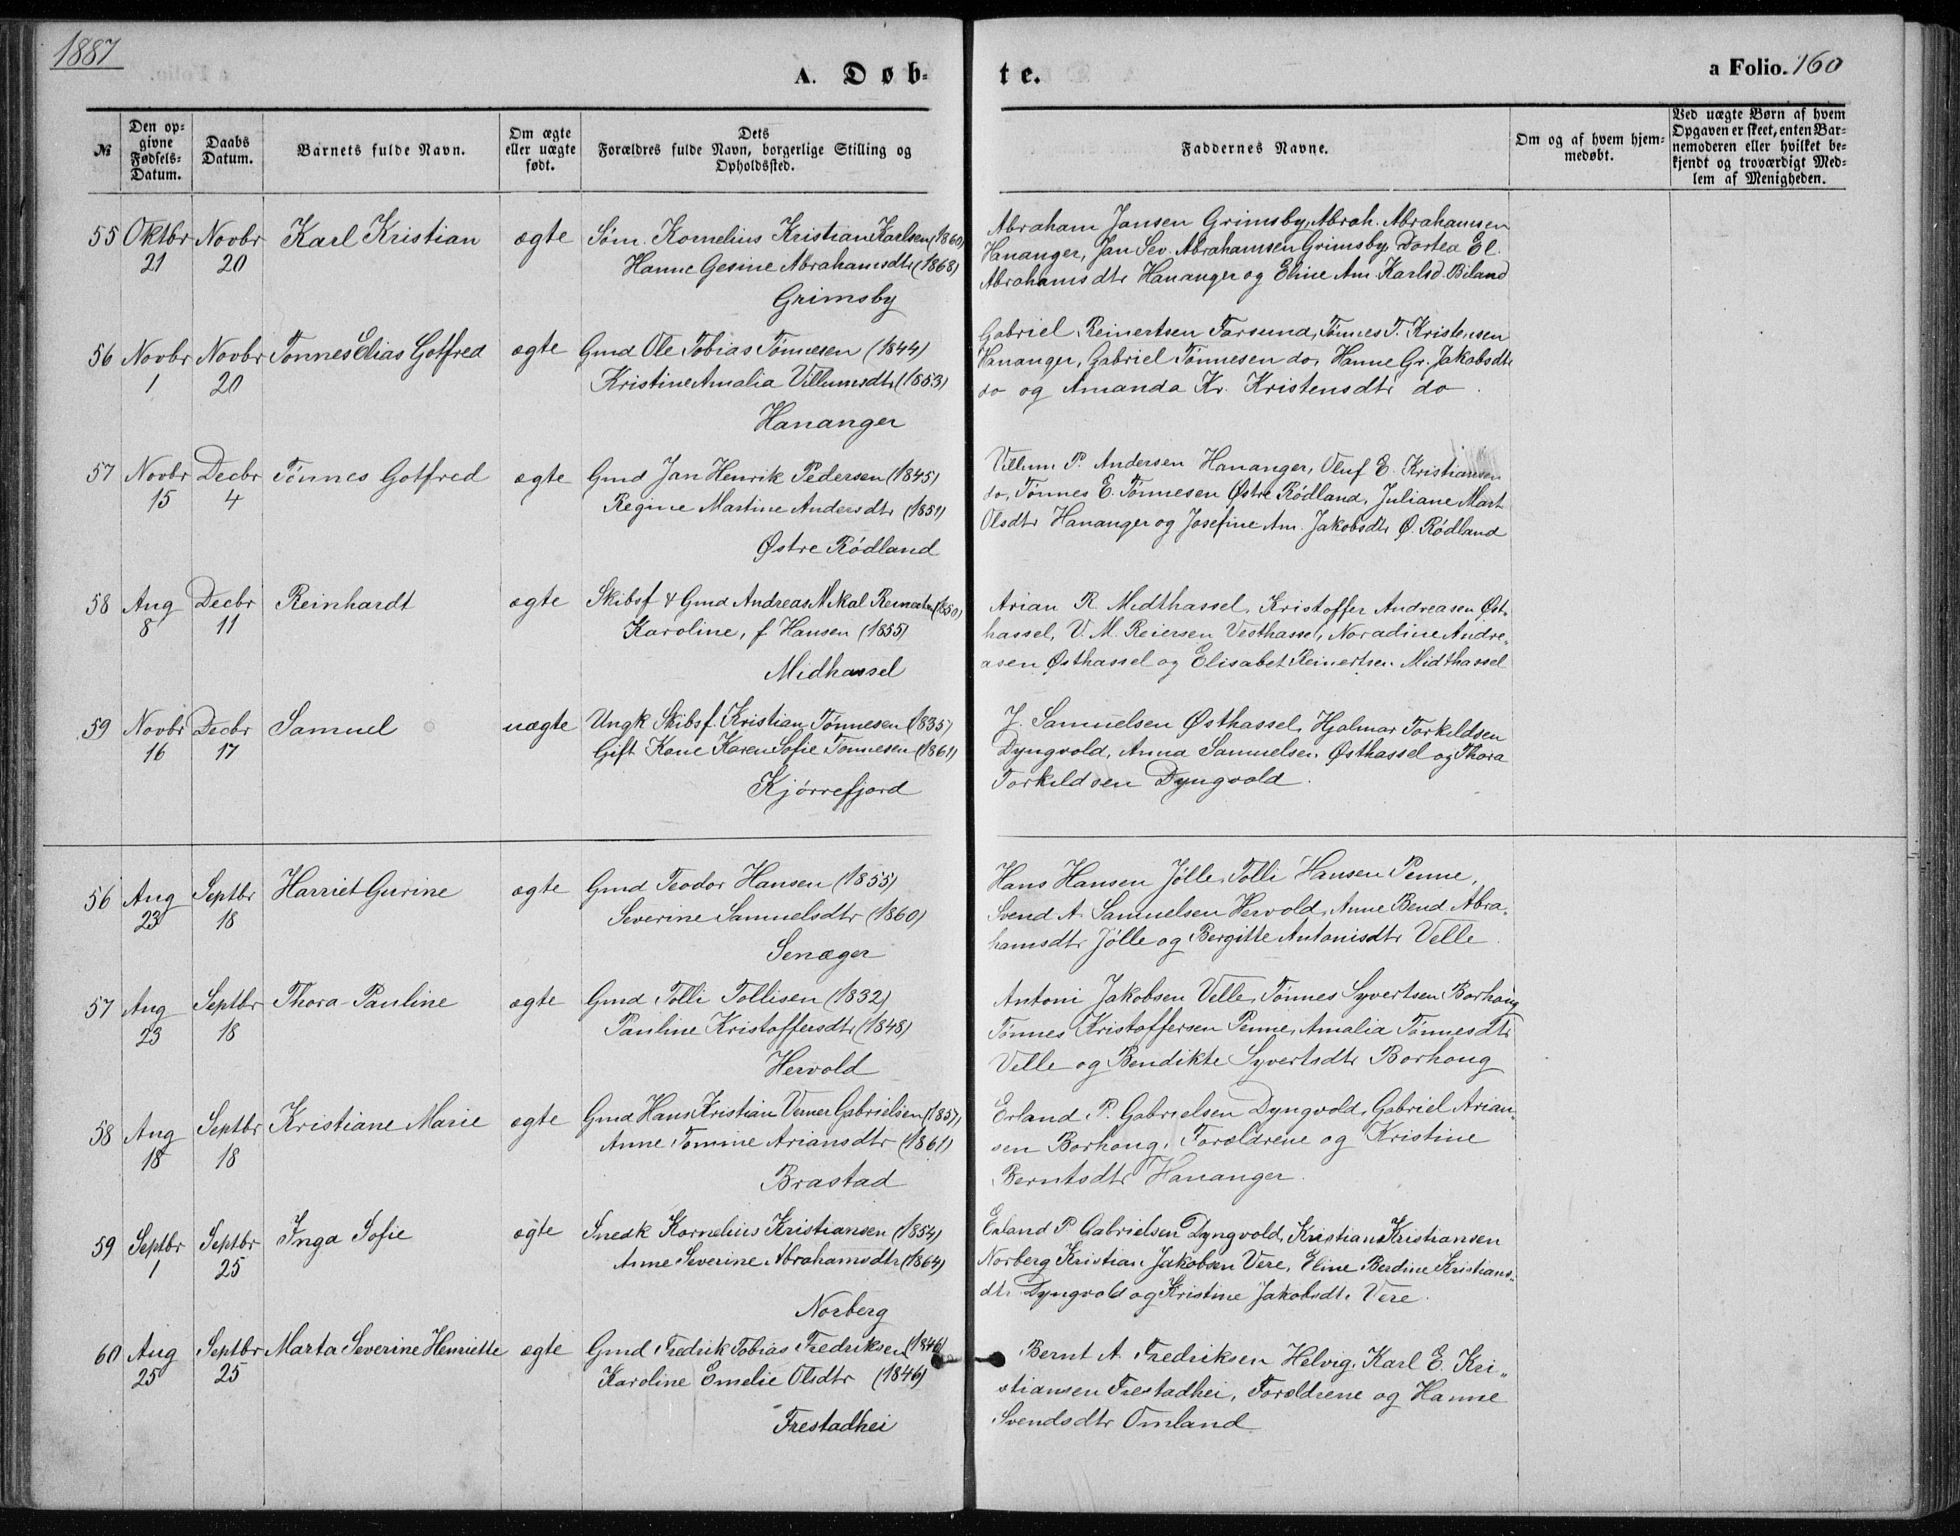 1887
A. Døb-
te.
a Folio. 160
№
Den op-
givne
Fødsels-
Datum.
Daabs
Datum.
Barnets fulde Navn.
Om ægte
eller uægte
født.
Dets
Forældres fulde Navn, borgerlige Stilling og
Opholdssted.
Faddernes Navne.
Om og af hvem hjem-
medøbt.
Ved uægte Børn af hvem
Opgaven er skeet, enten Bar-
nemoderen eller hvilket be-
kjendt og troværdigt Med-
lem af Menigheden.
55 Oktbr Novbr Karl Kristian ægte Søm. Kornelius Kristian Karlsen (1860)
21 20 Hanne Gesine Abrahamsdtr (1868)
Grimsby
Abraham Jansen Grimsby, Abrah. Abrahamsen
Hananger, Jan Sev. Abrahamsen Grimsby, Dortea El.
Abrahamsdtr Hananger og Eline Am. Karlsd. Biland
56 Novbr Novbr Tønnes Elias Gotfred ægte Gmd Ole Tobias Tønnesen (1844)
1 20 Kristine Amalia Villumsdtr (1853)
Hananger
Gabriel Reinertsen Farsund, Tønnes T. Kristensen
Hananger, Gabriel Tønnesen do, Hanne Gr. Jakobsdtr
do og Amanda Kr. Kristensdtr do.
57 Novbr Decbr Tønnes Gotfred ægte Gmd Jan Henrik Pedersen (1845)
15 4 Regine Martine Andersdtr (1851)
Østre Rødland
Villum P. Andersen Hananger, Oluf E. Kristiansen
do, Tønnes E. Tønnesen Østre Rødland, Juliane Mart
Olsdtr Hananger og Josefine Am. Jakobsdtr Ø. Rødland
58 Aug Decbr Reinhardt ægte Skibsf & Gmd Andreas Mikal (1850)
8 11 Karoline, f. Hansen (1855)
Midhassel
Arian R. Midthassel, Kristoffer Andreasen Øst-
hassel, V. M. Reiersen Vesthassel, Noradine Andre-
asen Østhassel og Elisabet Reinertsen Midthassel
59 Novbr Decbr Samuel uægte Ungk Skibsf. Kristian Tønnesen (1835)
16 17 Gift Kone Karen Sofie Tønnesen (1861)
Kjørrefjord
J. Samuelsen Østhassel, Hjalmar Torkildsen
Dyngvold, Anna Samuelsen Østhassel og Thora
Torkildsen Dyngvold.
56 Aug Septbr Harriet Gurine ægte Gmd Teodor Hansen (1855)
23 18 Severine Samuelsdtr (1860)
Senæger
Hans Hansen Jølle, Tolli Hansen Penne,
Svend A. Samuelsen Hervold, Anne Bend. Abra-
hamsdtr Jølle og Bergitte Antonisdtr Velle.
57 Aug Septbr Thora Pauline ægte Gmd Tolli Tollisen (1832)
23 18 Pauline Kristoffersdtr (1848)
Hervold
Antoni Jakobsen Velle, Tønnes Syvertsen Borhaug
Tønnes Kristoffersen Penne, Amalia Tønnesdtr
Velle og Bendikte Syvertsdtr Borhaug
58 Aug Septbr Kristiane Marie ægte Gmd Hans Kristian Verner Gabrielsen (1857)
18 18 Anne Tomine Ariansdtr (1861)
Brastad
Erland P. Gabrielsen Dyngvold, Gabriel Arian-
sen Borhaug, Forældrene og Kristine
Berntsdtr Hananger.
59 Septbr Septbr Inga Sofie ægte Snedk Kornelius Kristiansen (1854)
1 25 Anne Severine Abrahamsdtr (1864)
Norberg
Erland P. Gabrielsen Dyngvold, Kristian Kristiansen
Norberg Kristian Jakobsen Vere, Eline Berdine Kristians-
dtr Dyngvold og Kristine Jakobsdtr Vere.
60 Aug Septbr Marta Severine Henriette ægte Gmd Fredrik Tobias Fredriksen (1846)
25 25 Karoline Emelie Olsdtr (1846)
Frestadhei
Bernt A. Fredriksen Helvig, Karl E. Kri-
stiansen Frestadhei, Forældrene og Hanne
Svendsdtr Omland.